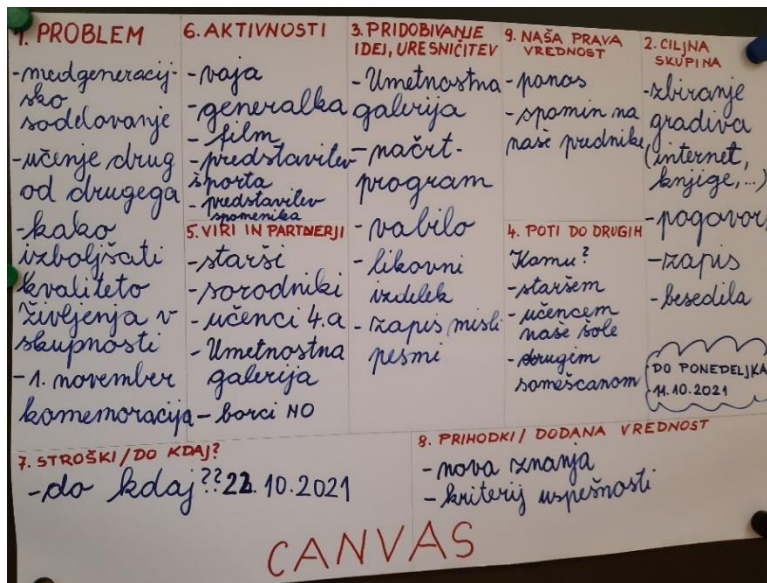 1. PROBLEM
-medgeneracij-
sko
sodelovanje
-učenje drug
od drugega
-kako
izboljšati
kvaliteto
življenja v
skupnosti
-1. november
komemoracija
6. AKTIVNOSTI
-vaja
-generalka
-film
-predstavitev
športa
-predstavitev
spomenika
5. VIRI IN PARTNERJI
-starši
-sorodniki
-učenci 4.a
-Umetnostna
galerija
-borci NO
3. PRIDOBIVANJE
IDEJ, URESNIČITEV
-Umetnostna
galerija
-načrt-
program
-vabilo
-likovni
izdelek
-zapis misli
pesmi
9. NAŠA PRAVA
VREDNOST
-ponos
-spomin na
naše prednike
4. POTI DO DRUGIH
Komu?
-staršem
-učencem
naše šole
-drugim
someščanom
2. CILJNA
SKUPINA
-zbiranje
gradiva
(internet,
knjige,...)
-pogovori
-zapis
-besedila
DO PONEDELJKA
11.10.2021
7. STROŠKI/DO KDAJ?
-do kdaj?? 22.10.2021
8. PRIHODKI/DODANA VREDNOST
-nova znanja
-kriterij uspešnosti
CANVAS